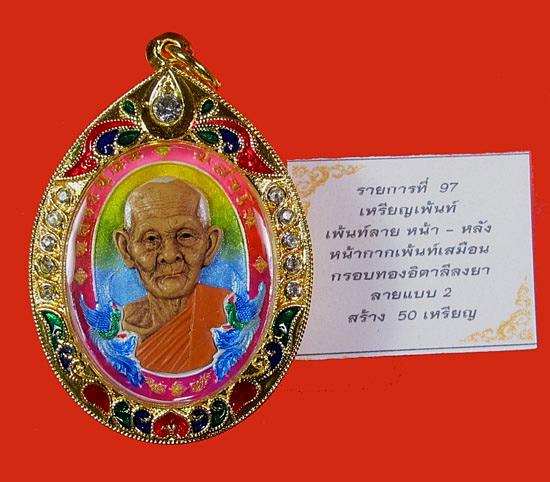 รายการที่ 97
เหรียญเพ้นท์
เพ้นท์ลาย หน้า - หลัง
หน้ากากเพ้นท์เสมือน
กรอบทองอิตาลีลงยา
ลายแบบ 2
สร้าง 50 เหรียญ